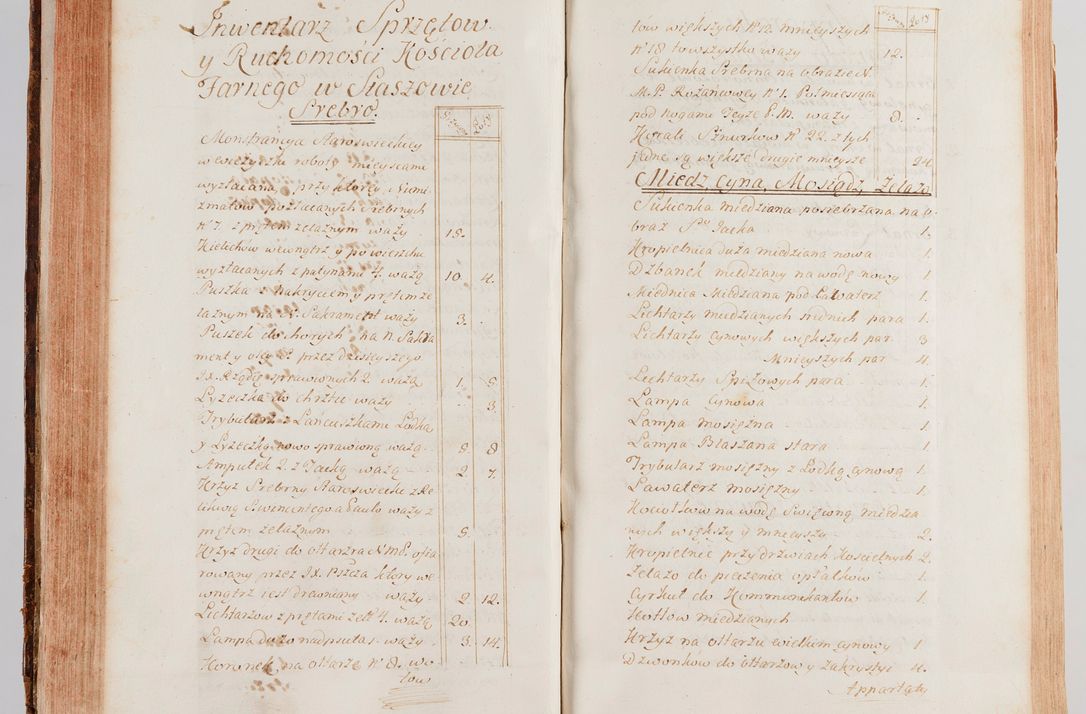 Inwentarz Sprzętow
y Ruchomości Kościoła
Farnego w Staszowie
Srebro.
Grzywna Łoty
Monstrancya Staroswieckiey
wewieżyczki roboty mieyscami
wyzłacana, przy ktorey Numi
zmatow pozłacanych srebrnych
N° 7. z prętem zelaznym waży 18.
Kielichow wewnątrz y powierzchu
wyzłacanych z patynami 4. ważą 10 4.
Puszka z nakryciem y prętem że
laznym na N. Sakrament waży 3.
Puszek do chorych na N. Sakra
ment y oley S. przez dzisieyszego
JX. Rządcę sprawionych 2. ważą 1. 5
Łyzeczka do chrztu waży 3.
Trybularz z Łancuszkami Łodka
y Łyzeczką nowo sprawioną ważą 9 8
Ampułek 2. z Tacką ważą 2 7.
Krzyż Srebrny Staroswiecki z Re
likwią S. wincentego a Paulo waży z
prętem zelaznym 5.
Krzyż drugi do ołtarza NMP. ofia
rowany przez JX. Pszcza ktory we
wnątrz jest drewniany waży 2. 12.
Lichtarzow z prętami zel: 4. ważą 20
Lampa dużo nadpsuta 1. waży 3. 14.
Koronek na ołtarze N° 8. wo
tow
Grzywna Łoty
tow większych N° 12. mnieyszych
N° 18 towszystko waży 12.
Sukienka Srebrna na obrazie N.
M.P. Rożańcowey N° 1. Poł miesiąca
pod nogami Teyże P.M. waży 8.
Korali Sznurkow N° 22. z tych
jedne są większe drugie mnieysze 24
Miedz, Cyna, Mosiądz, Żelazo
Sukienka miedziana posrebrzana na o
braz S° Jacka 1.
Kropielnica duża miedziana nowa 1
Dzbanek miedziany na wodę nowy 1
Miednica Miedziana pod Lawaterz 1.
Lichtarzy miedzianych srednich para 1.
Lichtarzy Cynowych większych par 3
Mnieyszych par 4.
Lichtarzy Spiżowych para 1.
Lampa Cynowa 1.
Lampa mosiężna 1.
Lampa Blaszana stara 1.
Trybularz mosiężny z Łodką cynową 1.
Lawaterz mosiężny 1.
Kociołkow na wodę Swięconą miedzia
nych większy y mnieyszy 2.
Kropielnic przy drzwiach Koscielnych 2.
Zelazo do pieczenia opłatkow 1.
Cyrkuł do Kommunikantow 1
Kotłow miedzianych
Krzyż na ołtarzu wielkim cynowy 1
Dzwonkow do ołtarzow y Zakrystyi 4.
Apparaty